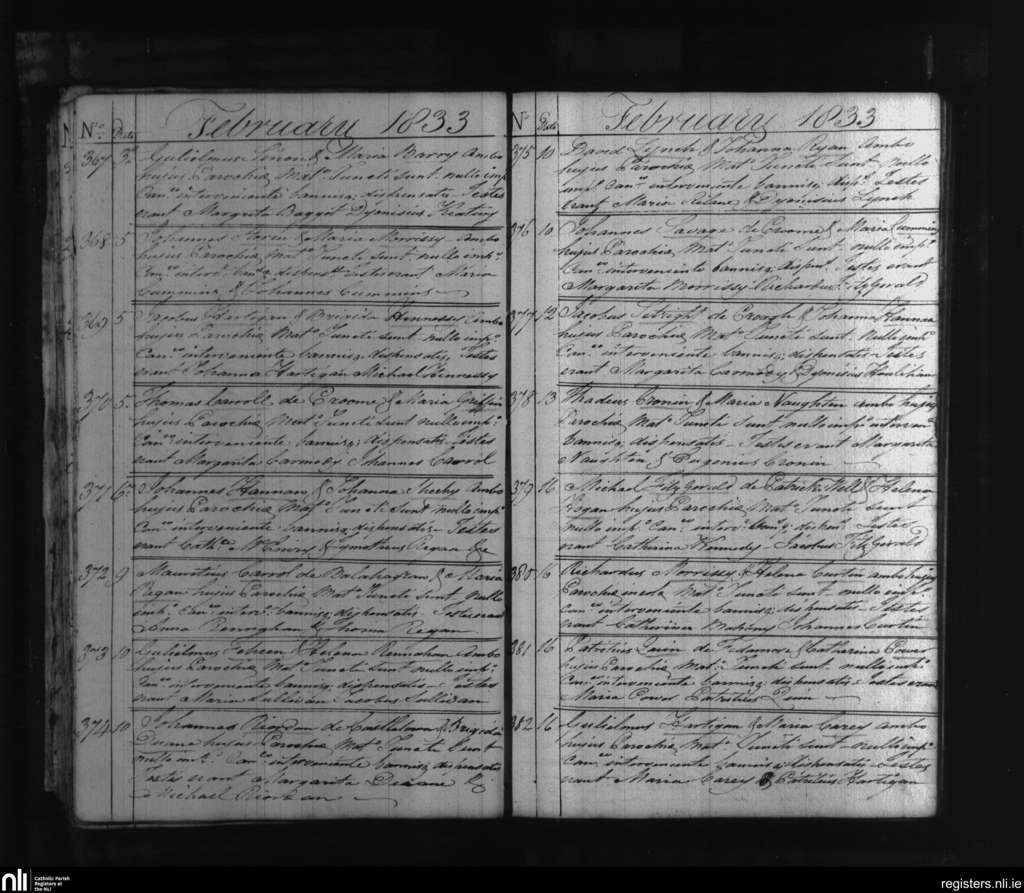 No. Date February 1833
367 3d Gulielmus Lenon & Maria Barry Ambo
hujus Parochia Mato. Juncti sunt nullo imp
Canco. interveniente bannisq; dispensatis Testes
erant Margrita Baggot Dyonisius Keating
368 5 Johannes & Maria Morrissy Ambo
hujus Parochia Mato. Juncti sunt nullo impo.
Canco. intervte. bannisq dispensatis testes erant Maria
Cummins & Johannes Cummins
369 5 Jacobus Hartigan & Brigida Hennessy Ambo
hujus Parochia Mato. Juncti sunt nullo impo.
Canco. interveniente bannisq; dispensatis, Testes
erant Johanna Hartigan Michael Hennessy
370 5. Thomas Carroll de Croome & Maria Griffin
hujus Parochia Mato. Juncti sunt nullo impo.
Canco. interveniente bannisq; dispensatis Testes
erant Margarita Carmody Johannes Carrol
371 6. Johannes Hannan & Johanna Sheehy Ambo
hujus Parochia Mato. Juncti sunt nullo impo.
Canco. interveniente bannisq; dispensatis - Testes
erant Cathe. McEniry & Tymotheus Regan &c
372 9 Mauritius Carrol de & Maria
Regan hujus Parochia Mato. Juncti sunt nullo
impo. Canco. intervte. bannisq; dispensatis Testes erant
Anna & Thoma Regan
373 10 Gulielmus & Helena Ambo
hujus Parochia Mato. Juncti sunt nullo impo.
Canco. interveniente bannisq; dispensatis Testes
erant Maria Sullivan Jacobus Sullivan
374 10 Johannes Riordan de Castletown & Brigida
Duane hujus Parochia Mato. Juncti sunt
nullo impo. Canco. interveniente bannisq; dispensatis
Testes erant Margarita Duane &
Michael Riordan
No. Date February 1833
375 10 David Lynch & Johanna Ryan Ambo
hujus Parochia Mato. Juncti sunt nullo
impo. Canco. interveniente bannisq; dispo. Testes
erant Maria & Dyonisius Lynch
376 10 Johannes Savage de Croome & Maria Cummins
hujus Parochia Mato. Juncti sunt nullo impo.
Canco. interveniente bannisq; dispens. Testes erant
Margarita Morrissy Richardus FitzGerald
377 12 Jacobus de Creagh & Johanna Hannan
hujus Parochia Mato. Juncti sunt. Nullo impo.
Canco. interveniente bannisq; dispensatis Testes
erant Margarita Carmody & Dyonisius Houlihan
378 13 Thadeus Cronin & Maria Naughten ambo hujus
Parochia Mato. Juncti sunt nullo impo interven
bannisq dispensatis - Testes erant Margarita
Naughten & Eugenius Cronin
379 16 Michael FitzGerald de Patricks Well & Helena
Hogan hujus Parochia Mato. Juncti sunt
nullo impo. Canco. intervte. banisq. dispens. Testes
erant Catherina Kennedy Jacobus FitzGerald
380 16 Richardus Morrissy & Helena Curtin ambo hujus
Parochia Mato. Juncti sunt - nullo impo.
Canco. interveniente bannisq; dispensatis - Testes
erant Catherina Mahony Johannes Curtin
381 16 Patritius Quin de Fedamore & Catherina Power
hujus Parochia Mato. Juncti sunt. nullo impo.
Canco. interveniente bannisq; dispensatis - Testes erant
Maria Power Patritius Quin
382 16 Gulielmus Hartigan & Maria Carey ambo
hujus Parochia Mato. Juncti sunt - nullo impo.
Canco. interveniente bannisq; dispensatis Testes
erant Maria Carey & Patritius Hartigan
nli Catholic Parish
Registers at
the NLI
registers.nli.ie